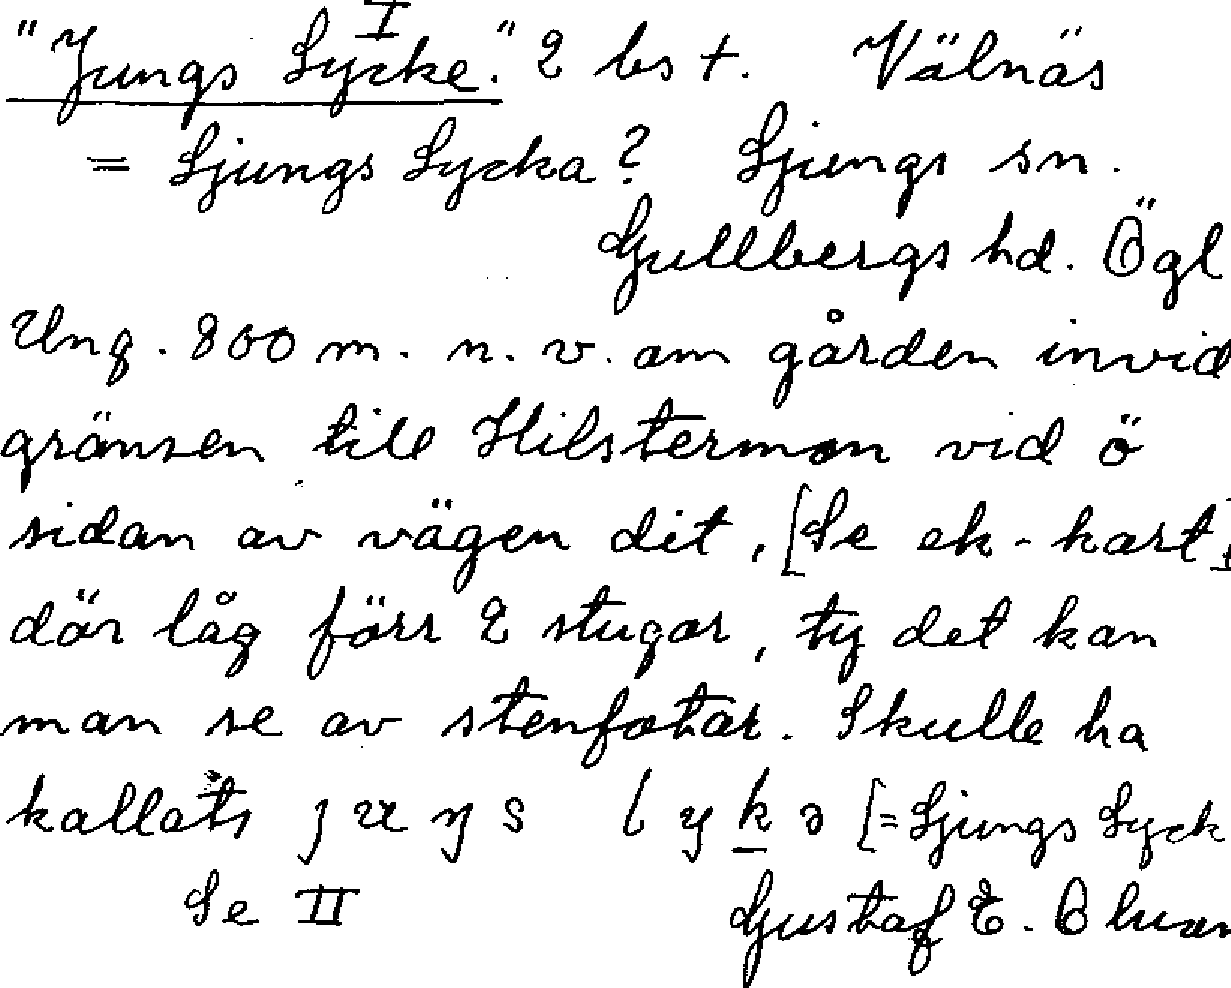 I
"Jungs Lycke." 2 bs t. Välnäs
= Ljungs Lycka? Ljungs sn.
Gullbergs hd. Ögl
Ung. 800 m. n. v. om gården invid
gränsen till Hilstermon vid ö
sidan av vägen dit, [Se ek-kart]
där låg förr 2 stugor, ty det kan
man se av stenfotar. Skulle ha
kallats lykə [= Ljungs Lyck
Se II Gustaf E.